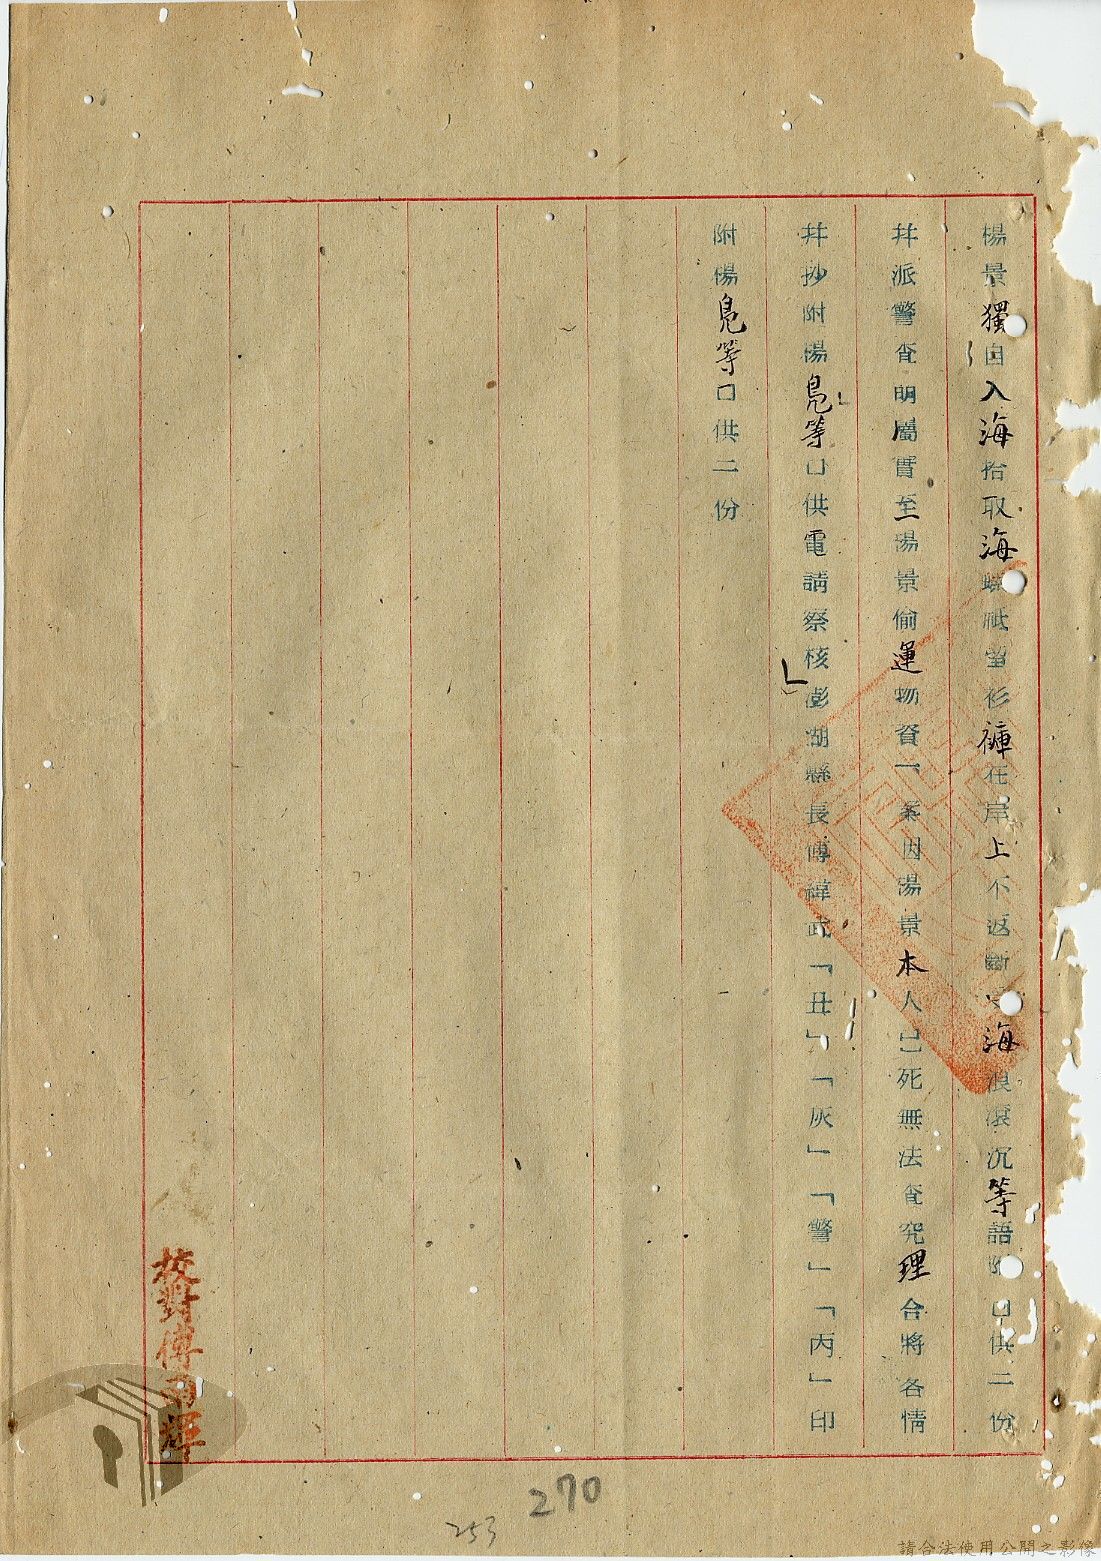 楊景獨自入海拾取海螺祗留衫褲在岸上不返斷 海浪滾沉等語附口供二份
幷派警查明屬實至楊景偷運物資一案因湯景本人已死無法查究理合將各情
幷抄附楊鳧等口供電請察核澎湖縣長傅緯武「丑」「灰」「警」「丙」印
附楊鳧等口供二份
校對傅 輝
270
253
請合法使用公開之影像